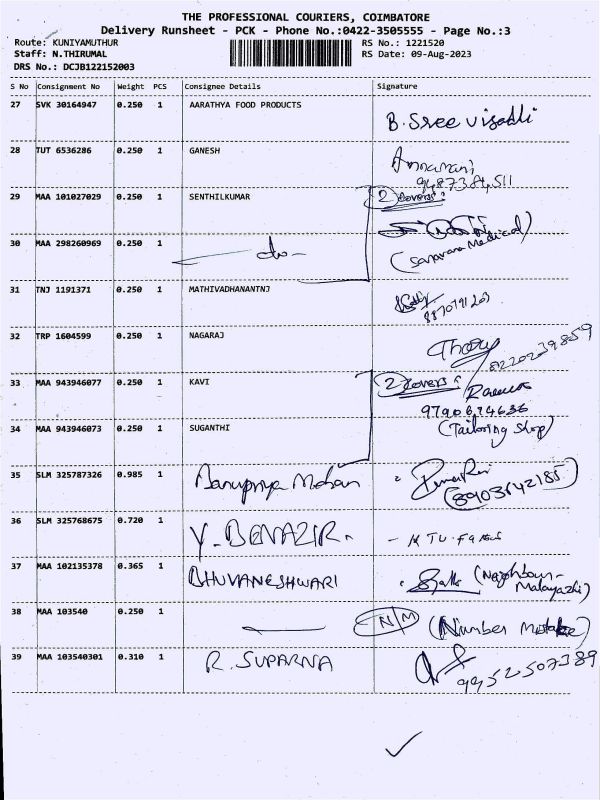 THE PROFESSIONAL COURIERS, COIMBATORE
Delivery Runsheet - PCK - Phone No.:0422-3505555 - Page No.:3
Route: KUNIYAMUTHUR RS No.: 1221520
Staff: N.THIRUMAL RS Date: 09-Aug-2023
DRS No.: DCJB122152003
S No Consignment No Weight PCS Consignee Details Signature
27 SVK 30164947 0.250 1 AARATHYA FOOD PRODUCTS
B. Sree
28 TUT 6536286 0.250 1 GANESH
29 MAA 101027029 0.250 1 SENTHILKUMAR 2 Covers
30 MAA 298260969 0.250 1 do
Medical)
31 TNJ 1191371 0.250 1 MATHIVADHANANTNJ
32 TRP 1604599 0.250 1 NAGARAJ
8220239859
33 MAA 943946077 0.250 1 KAVI 2 Covers
34 MAA 943946073 0.250 1 SUGANTHI (Tailoring Shop)
35 SLM 325787326 0.985 1 Mohan
(8903642185)
36 SLM 325768675 0.720 1 Y. BENAZIR.
37 MAA 102135378 0.365 1 BHUVANESHWARI (Neighbour-
38 MAA 103540 0.250 1 N/M (Number Mistake)
39 MAA 103540301 0.310 1 R. SUPARNA
9952507389